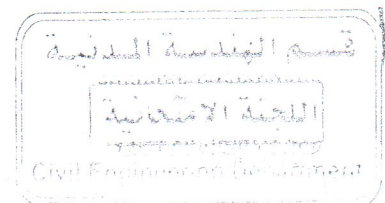 قسم الهندسة المدنية
اللجنة الامتحانية
Civil Engineering Department